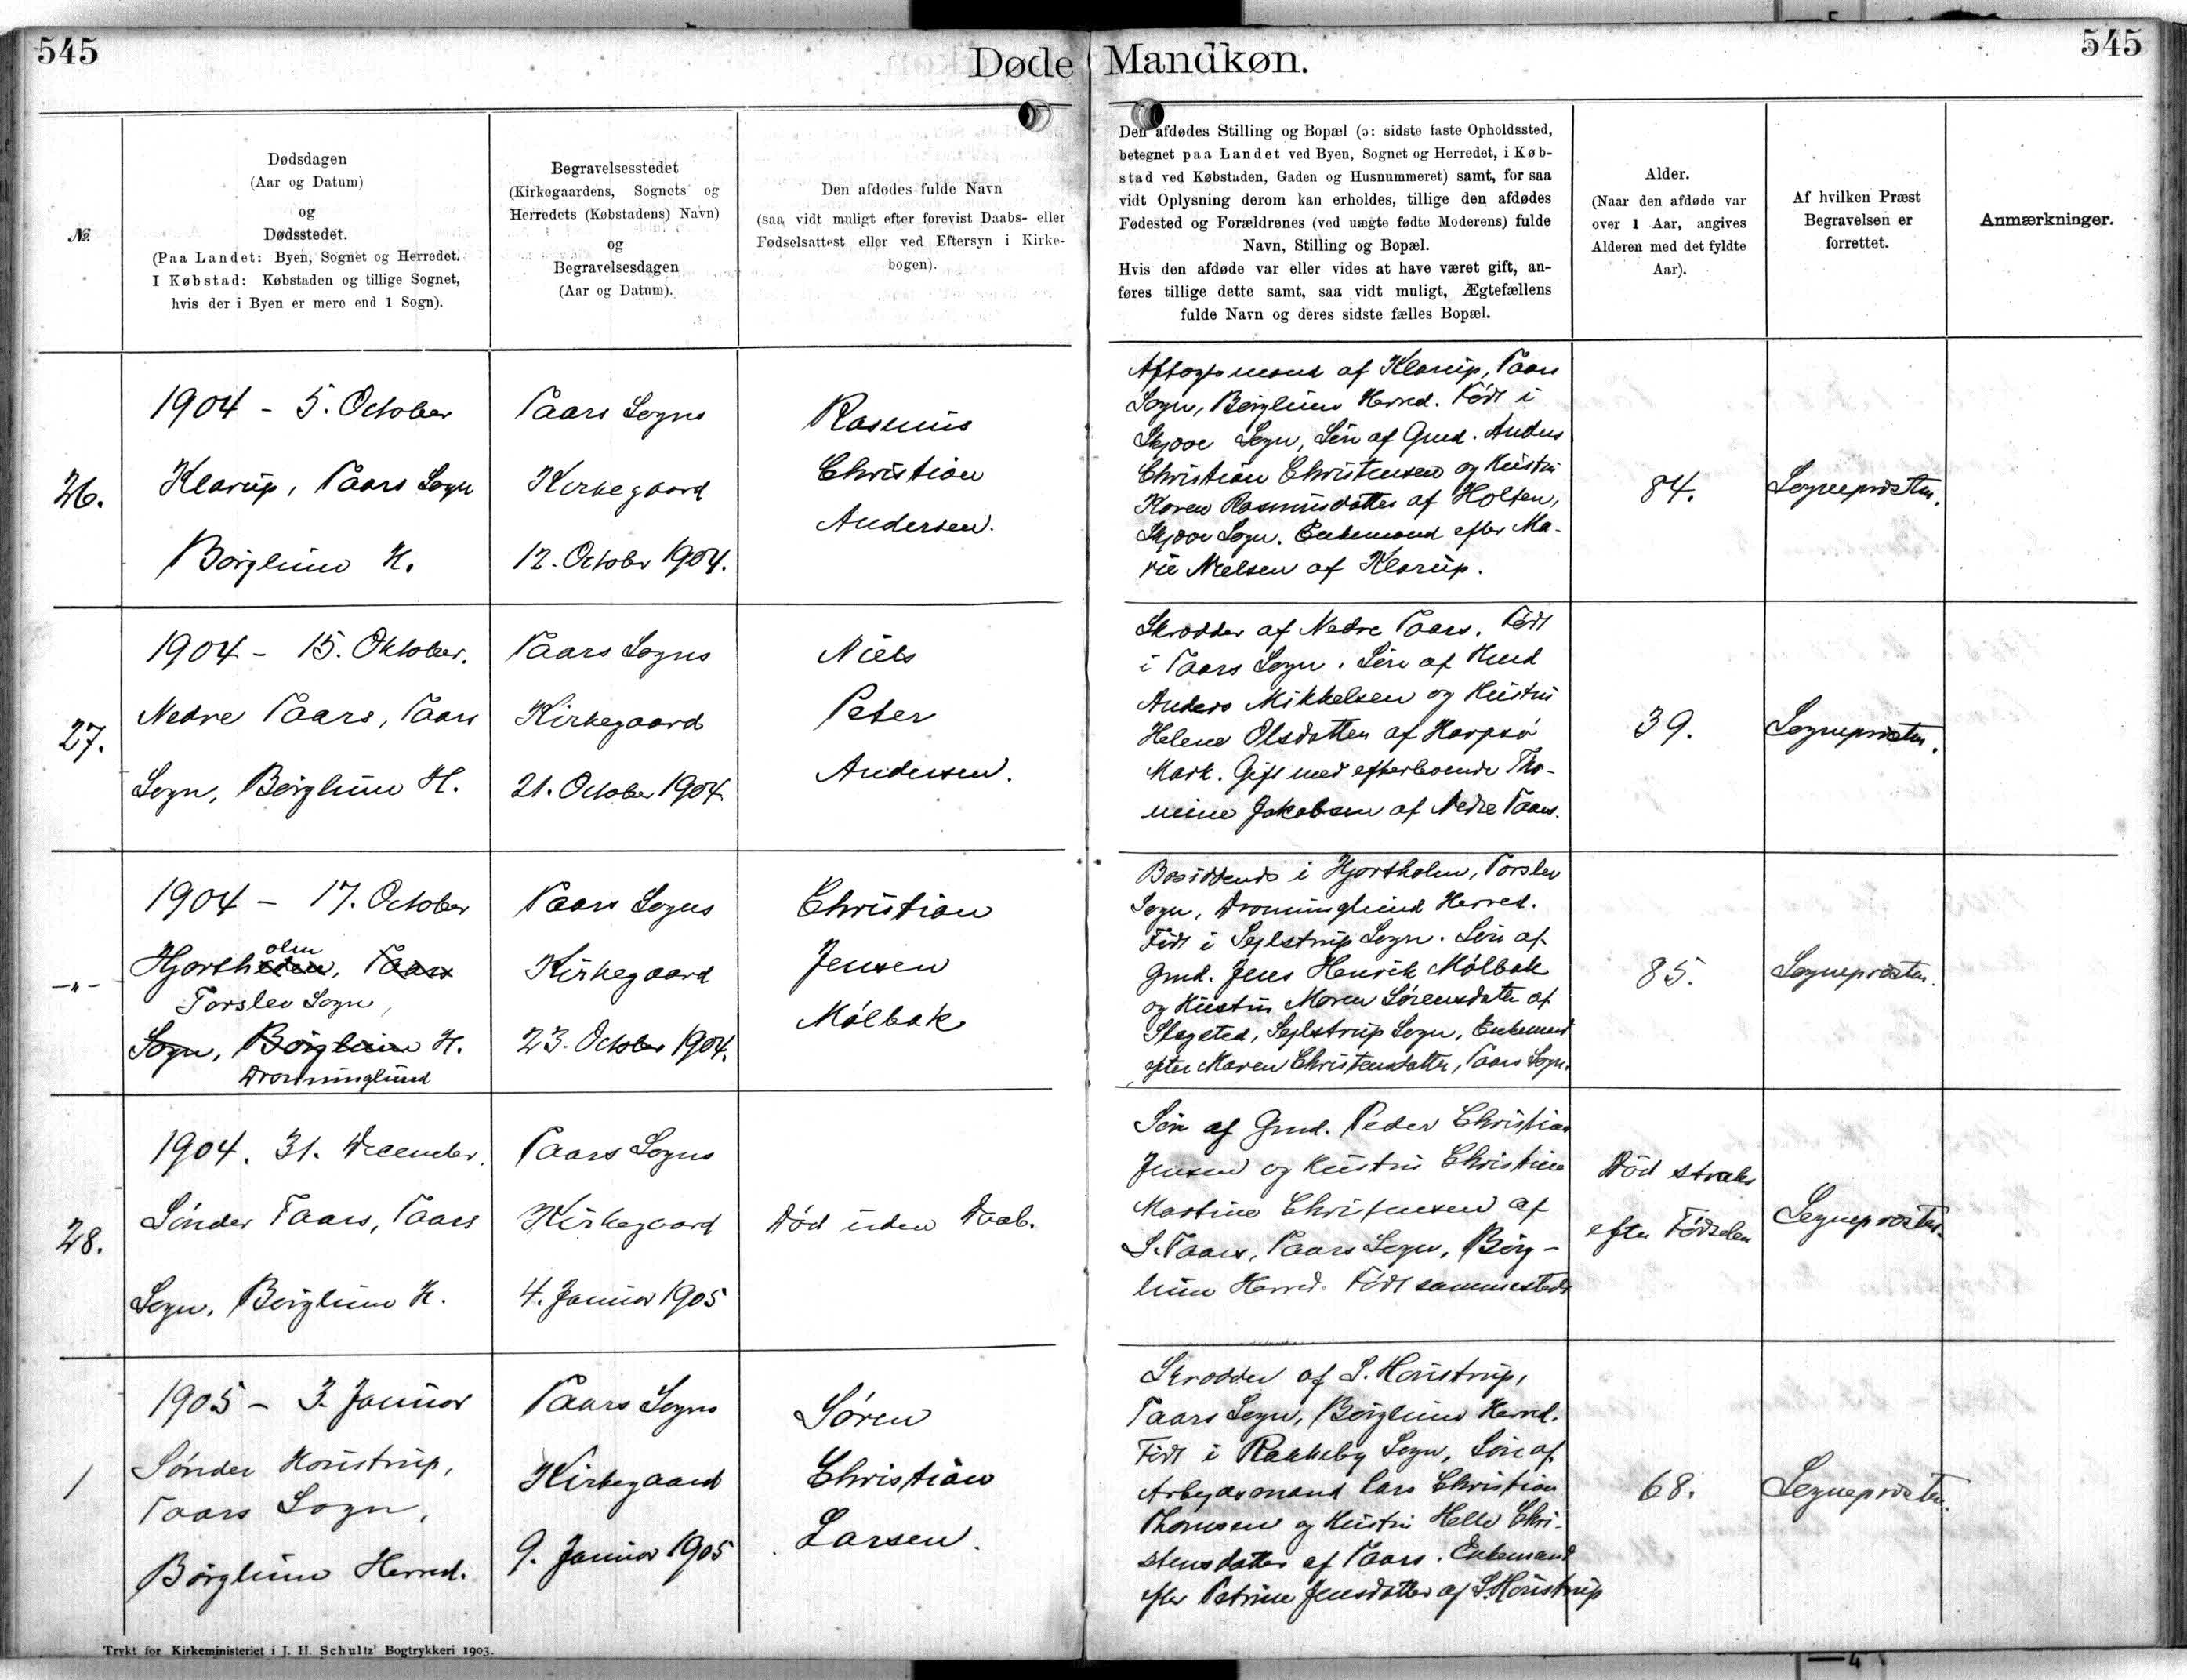 545
Døde Mandkøn.
545
№
Dødsdagen
(Aar og Datum)
og
Dødsstedet.
(Paa Landet: Byen, Sognet og Herredet.
I Købstad: Købstaden og tillige Sognet,
hvis der i Byen er mere end 1 Sogn).
Begravelsesstedet
(Kirkegaardens, Sognets og
Herredets (Købstadens) Navn)
og
Begravelsesdagen
(Aar og Datum).
Den afdødes fulde Navn
(saa vidt muligt efter forevist Daabs- eller
Fødselsattest eller ved Eftersyn i Kirke-
bogen).
Den afdødes Stilling og Bopæl (ɔ: sidste faste Opholdssted,
betegnet paa Landet ved Byen, Sognet og Herredet, i Køb-
stad ved Købstaden, Gaden og Husnummeret) samt, for saa
vidt Oplysning derom kan erholdes, tillige den afdødes
Fødested og Forældrenes (ved uægte fødte Moderens) fulde
Navn, Stilling og Bopæl.
Hvis den afdøde var eller vides at have været gift, an-
føres tillige dette samt, saa vidt muligt, Ægtefællens
fulde Navn og deres sidste fælles Bopæl.
Alder.
(Naar den afdøde var
over 1 Aar, angives
Alderen med det fyldte
Aar).
Af hvilken Præst
Begravelsen er
forrettet.
Anmærkninger.
26.
1904 - 5. October
Klarup, Taars Sogn
Børglum H.
Taars Sogns
Kirkegaard
12. October 1904.
Rasmus
Christian
Andersen.
Aftægtsmand af Klarup, Taars
Sogn, Børglum Herred. Født i
Skjæve Sogn, Søn af Gmd. Anders
Christian Christensen og Hustru
Karen Rasmusdatter af Holten,
Skjæve Sogn. Enkemand efter Ma-
rie Nielsen af Klarup.
84.
Sognepræsten.
27.
1904 - 15. Oktober.
Nedre Taars, Taars
Sogn, Børglum H.
Taars Sogns
Kirkegaard
21. October 1904.
Niels
Peter
Andersen.
Skrædder af Nedre Taars. Født
i Taars Sogn. Søn af Hmd
Anders Mikkelsen og Hustru
Helene Olsdatter af Harpsø
Mark. Gift med efterlevende Tho-
mine Jakobsen af Nedre Taars.
39.
Sognepræsten.
-"-
1904 - 17. October
olm
Hjortheden, Taars
Torslev Sogn,
Sogn, Børglum H.
Dronninglund
Taars Sogns
Kirkegaard
23. October 1904.
Christian
Jensen
Mølbak
Bosiddende i Hjortholm, Torslev
Sogn, Dronninglund Herred.
Født i Sejlstrup Sogn. Søn af
Gmd. Jens Henrik Mølbak
og Hustru Maren Sørensdatter af
Stagsted, Sejlstrup Sogn, Enkemand
efter Maren Christensdatter, Taars Sogn.
85.
Sognepræsten.
28.
1904. 31. December.
Sønder Taars, Taars
Sogn, Børglum H.
Taars Sogns
Kirkegaard
4. Januar 1905
Død uden Daab.
Søn af Gmd. Peder Christian
Jensen og Hustru Christine
Martine Christensen af
S. Taars, Taars Sogn, Børg-
lum Herred. Født sammesteds
Død straks
efter Fødselen
Sognepræsten.
1
1905 - 3. Januar
Sønder Houstrup,
Taars Sogn,
Børglum Herred.
Taars Sogns
Kirkegaard
9. Januar 1905
Søren
Christian
Larsen.
Skrædder af S. Houstrup,
Taars Sogn, Børglum Herred.
Født i Rakkeby Sogn, Søn af
Arbejdsmand Lars Christian
Thomsen og Hustru Helle Chri-
stensdatter af Taars. Enkemand
efter Petrine Jensdatter af S. Houstrup
68.
Sognepræsten.
Trykt for Kirkeministeriet i J. H. Schultz' Bogtrykkeri 1903.